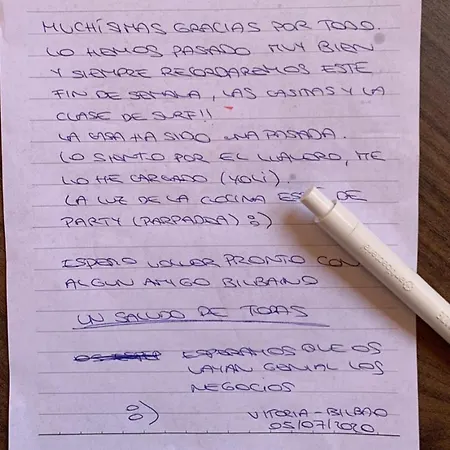 MUCHÍSIMAS GRACIAS POR TODO.
LO HEMOS PASADO MUY BIEN
Y SIEMPRE RECORDAREMOS ESTE
FIN DE SEMANA, LAS CASITAS Y LA
CLASE DE SURF!!
LA CASA HA SIDO UNA PASADA.
LO SIENTO POR EL LLAVERO, ME
LO HE CARGADO (YOLI).
LA LUZ DE LA COCINA ES DE
PARTY (PARPADEA) :)
ESPERO VOLVER PRONTO CON
ALGUN AMIGO BILBAINO
UN SALUDO DE TODAS
ESPERAMOS QUE OS
VAYAN GENIAL LOS
NEGOCIOS
:)
VITORIA-BILBAO
05/07/2020